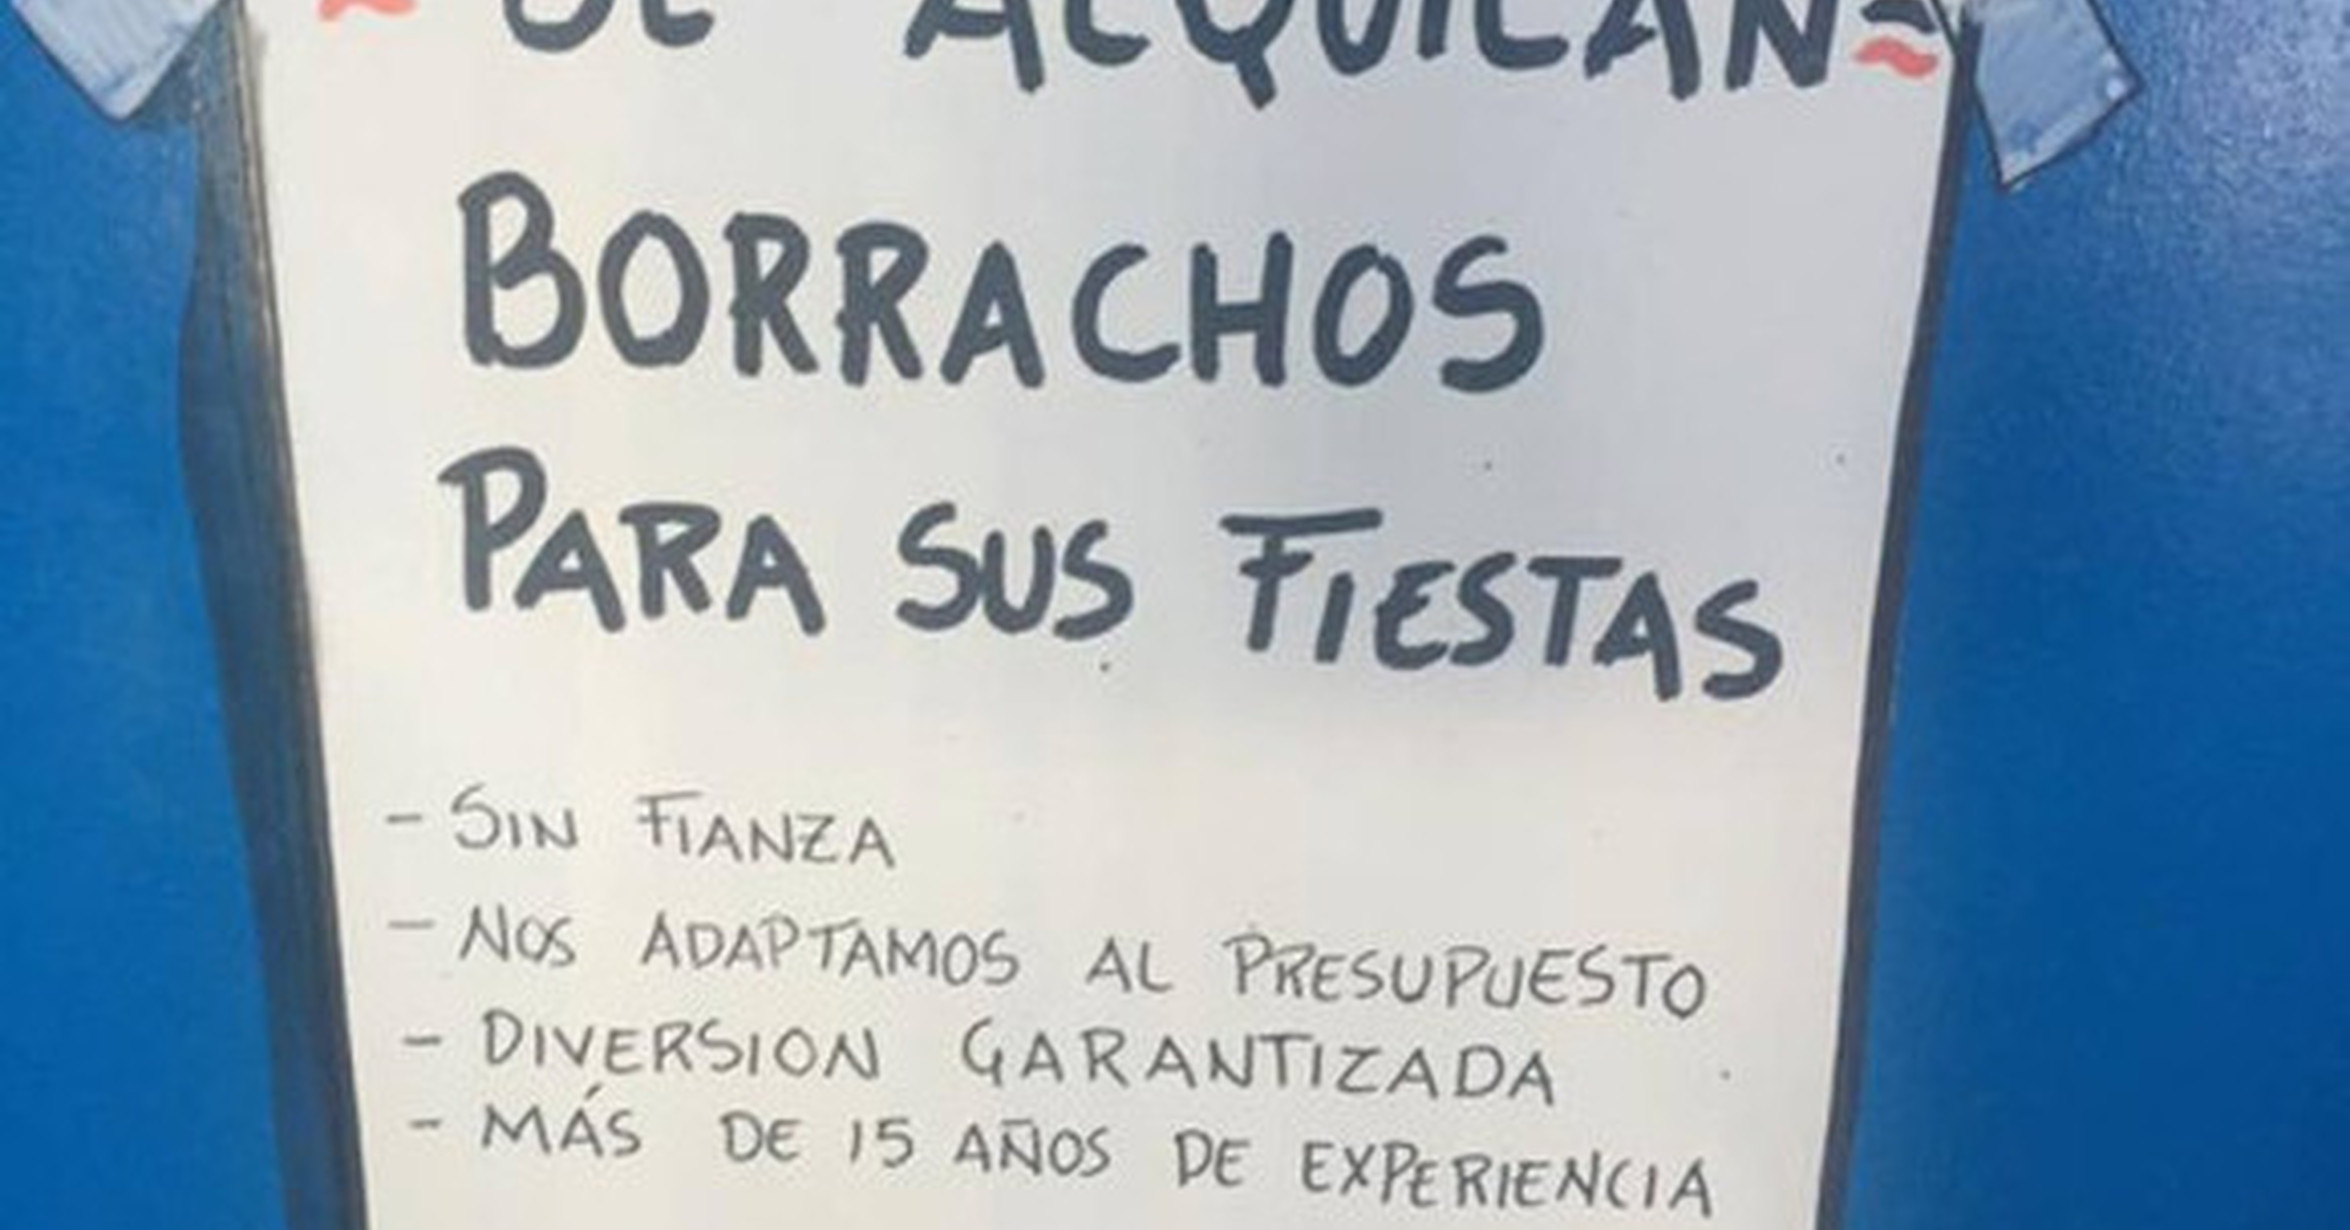 SE ALQUILAN
BORRACHOS
PARA SUS FIESTAS
- SIN FIANZA
- NOS ADAPTAMOS AL PRESUPUESTO
- DIVERSION GARANTIZADA
- MÁS DE 15 AÑOS DE EXPERIENCIA